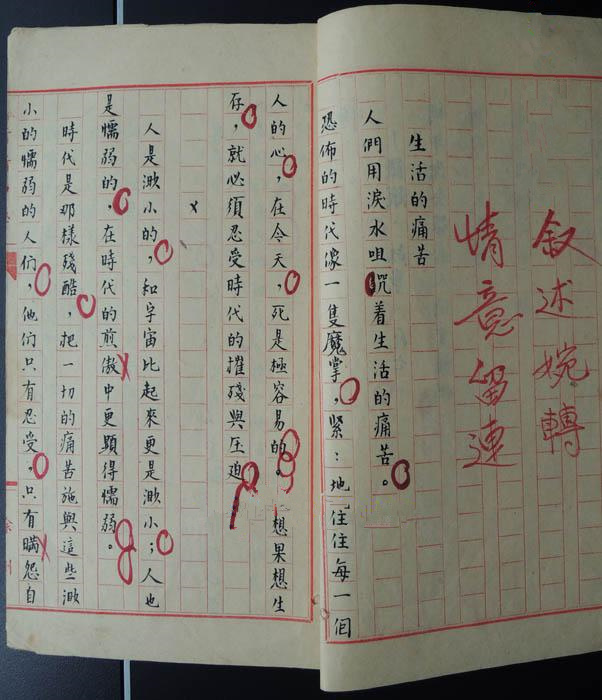 叙述婉轉
情意留連
生活的痛苦
人們用淚水咀呪着生活的痛苦。
恐佈的時代像一隻魔掌，緊：地住住每一個
人的心，在今天，死是極容易的。想果想生
存，就必須忍受時代的摧殘與压迫
x
人是渺小的，和宇宙比起來更是渺小；人也
是懦弱的，在時代的煎傲中更顕得懦弱。
時代是那樣殘酷，把一切的痛苦施與這些渺
小的懦弱的人们，他们只有忍受，只有瞞怨自